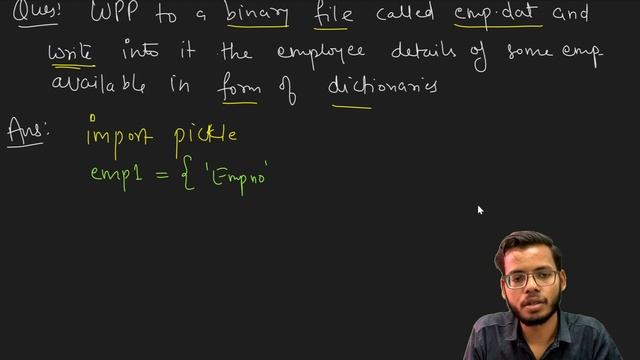 Ques: WPP to a binary file called emp.dat and
write into it the employee details of some emp
available in form of dictionaries
Ans: import pickle
emp1 = { 'Empno'